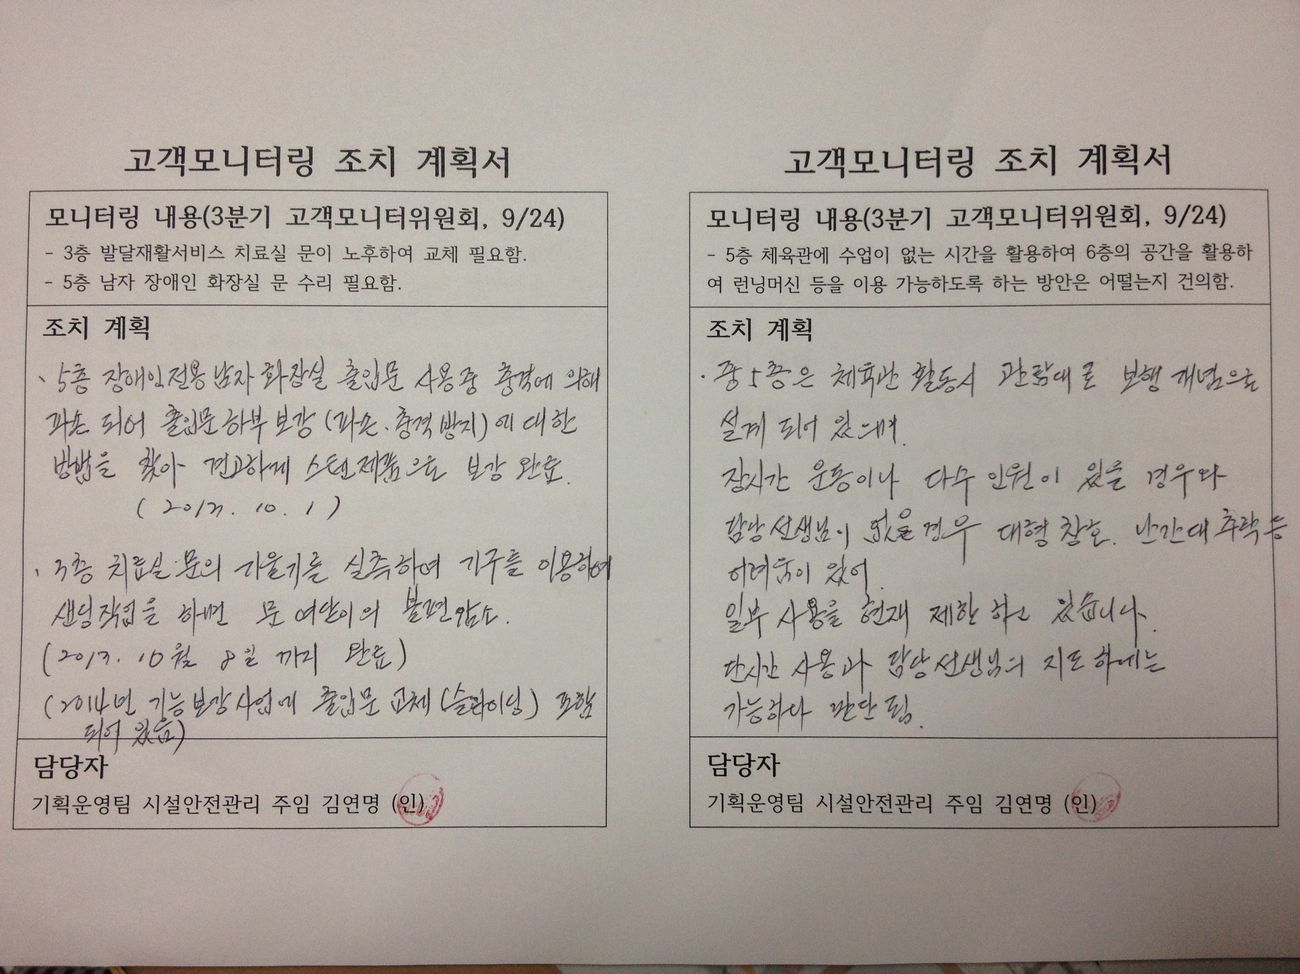 고객모니터링 조치 계획서
모니터링 내용(3분기 고객모니터위원회, 9/24)
- 3층 발달재활서비스 치료실 문이 노후하여 교체 필요함.
- 5층 남자 장애인 화장실 문 수리 필요함.
조치 계획
、5층 장애인전용 남자 화장실 출입문 사용중 충격에 의해
파손 되어 출입문 하부 보강 (파손.충격방지)에 대한
방법을 찾아 견고하게 스텐제품으로 보강 완료.
(2013. 10. 1)
、3층 치료실 문의 기울기를 실측하여 기구를 이용하여
샌딩작업을 하면 문 여닫이의 불편 감소.
(2013. 10월 8일 까지 완료)
(2014년 기능보강사업에 출입문 교체(슬라이딩) 포함
되어 있음)
담당자
기획운영팀 시설안전관리 주임 김연명 (인)
고객모니터링 조치 계획서
모니터링 내용(3분기 고객모니터위원회, 9/24)
- 5층 체육관에 수업이 없는 시간을 활용하여 6층의 공간을 활용하
여 런닝머신 등을 이용 가능하도록 하는 방안은 어떨는지 건의함.
조치 계획
· 중 5층은 체육관 활동시 관람대로 보행 개념으로
설계 되어 있으며.
장시간 운동이나 다수 인원이 있을 경우와
담당 선생님이 없을 경우 대형 창호. 난간대 추락 등
어려움이 있어.
일부 사용을 현재 제한 하고 있습니다.
단시간 사용과 담당선생님의 지도 하에는
가능하다 판단 됨.
담당자
기획운영팀 시설안전관리 주임 김연명 (인)